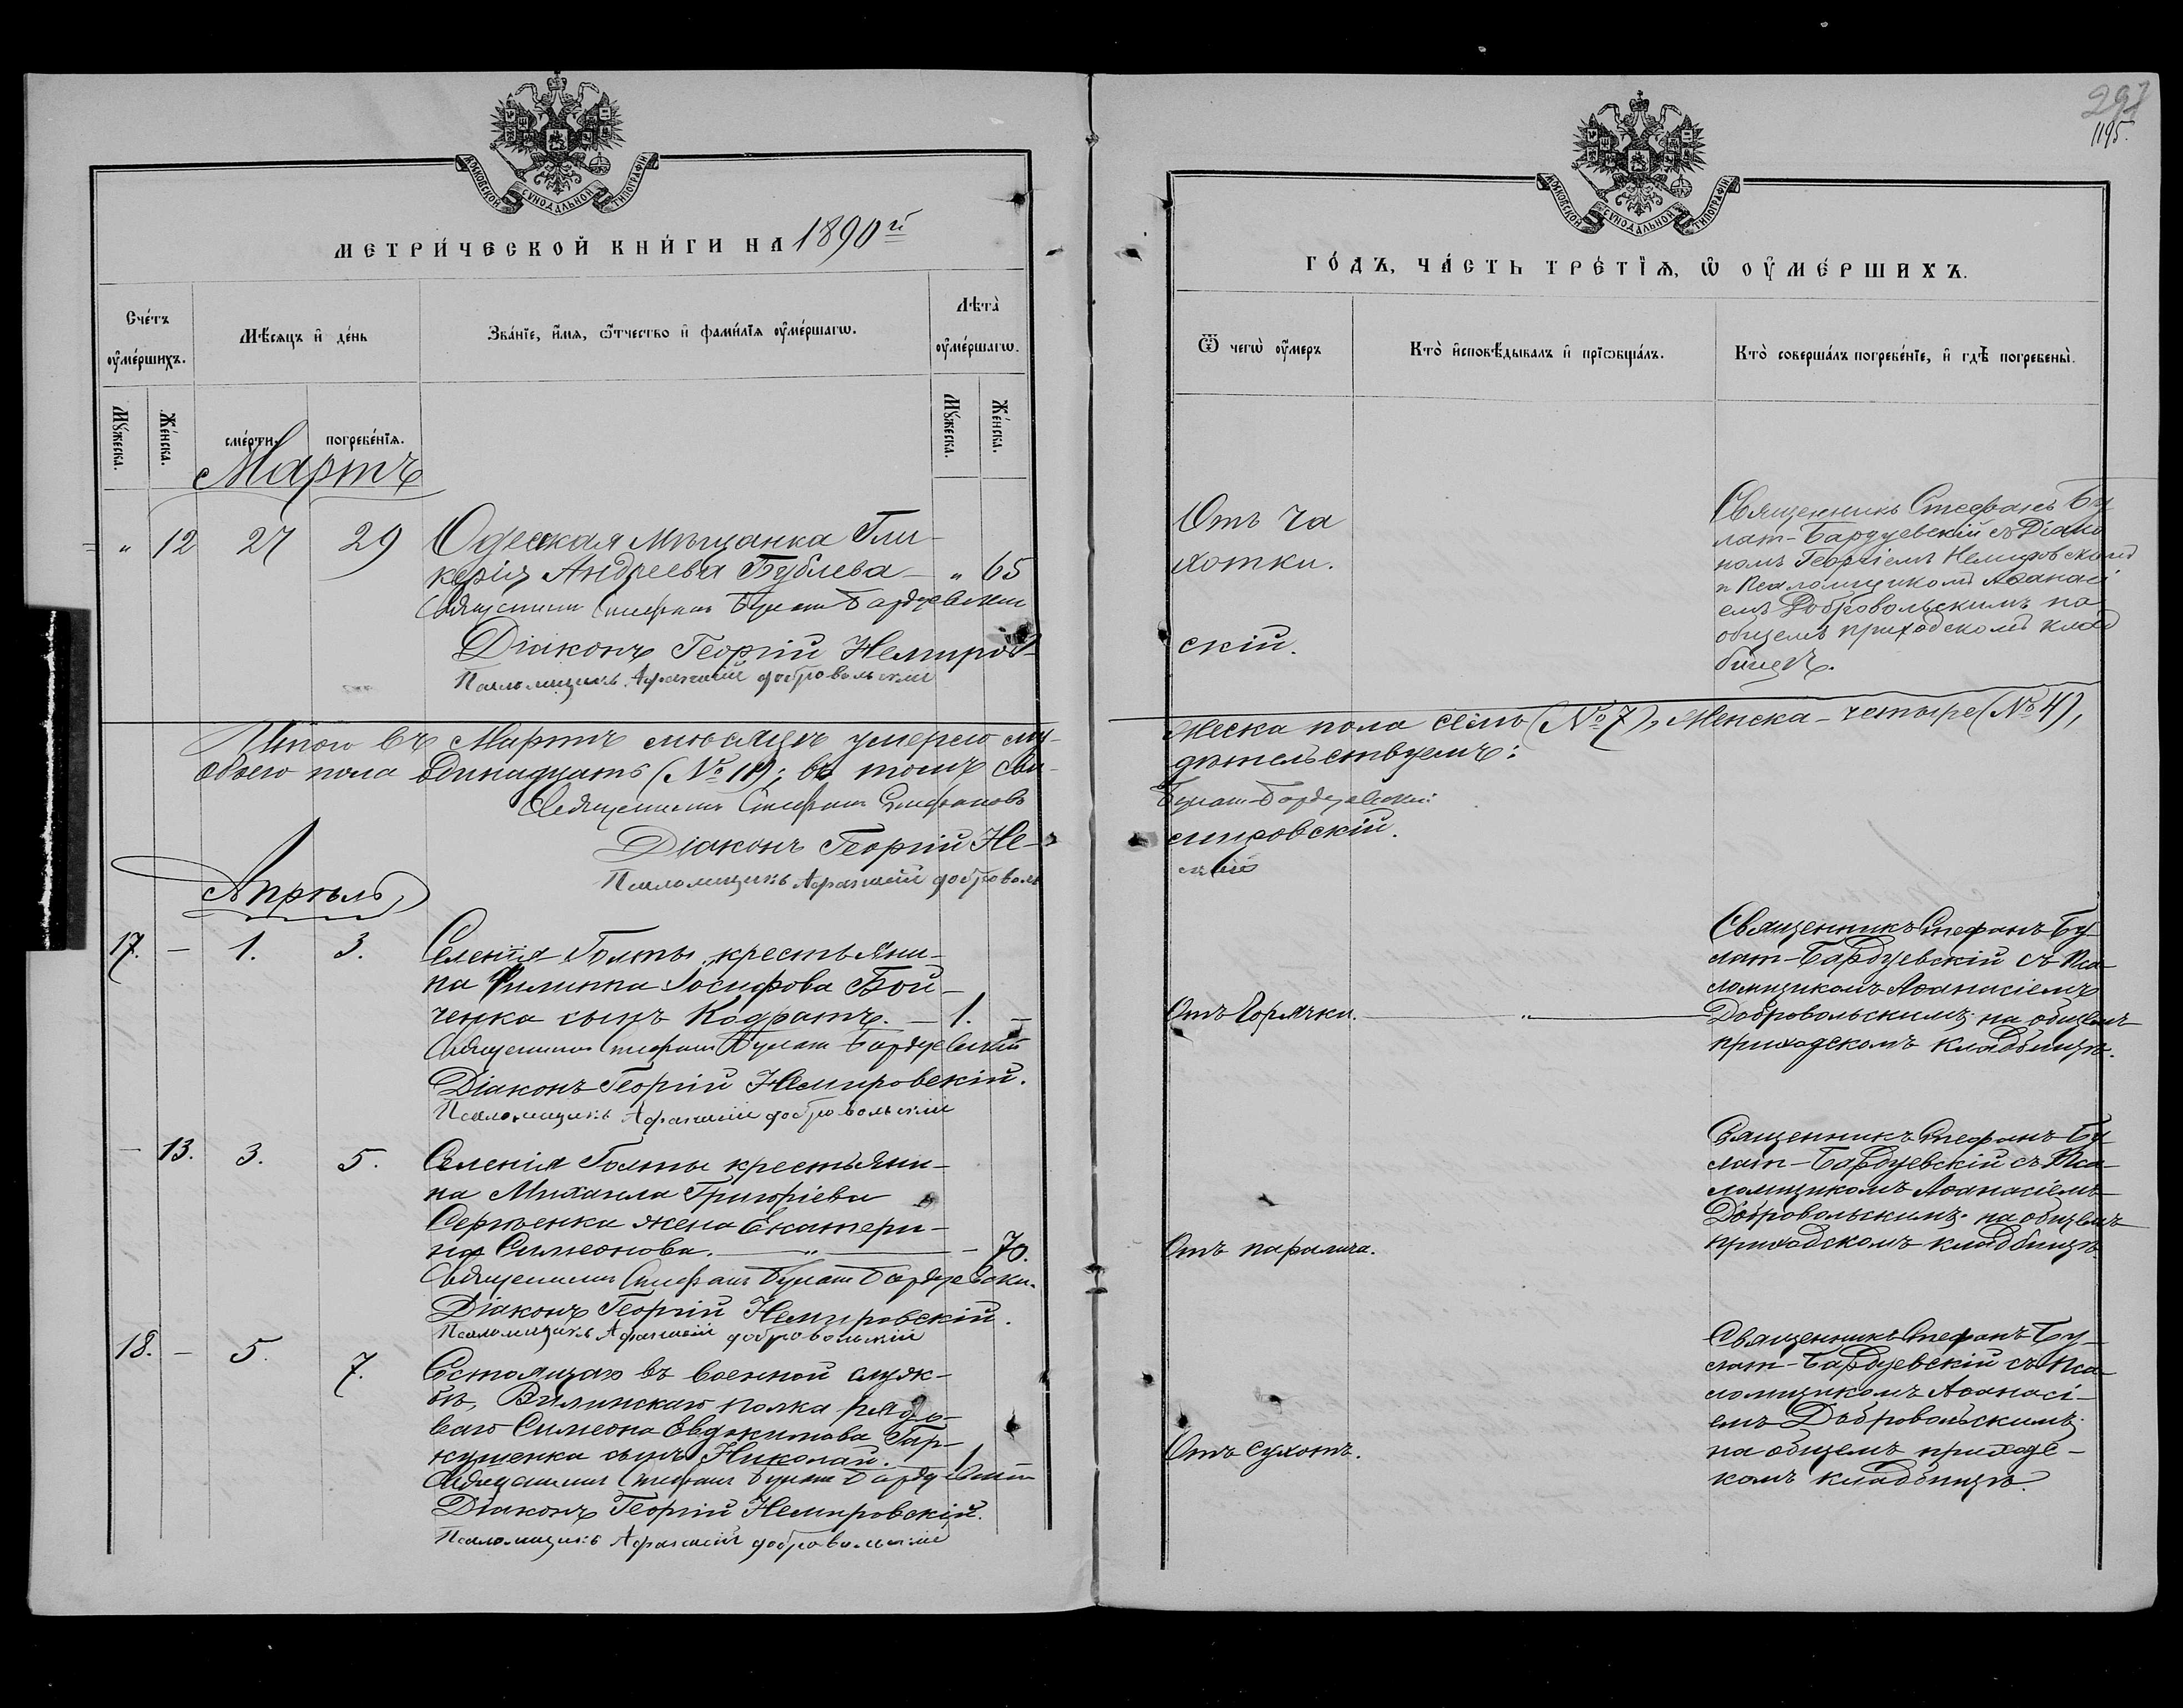 МОСКОВСКОЙ СѴНОДАЛЬНОЙ ТИПОГРАФІИ
МЕТРИ́ЧЕСКОЙ КНИ́ГИ НА 1890й
Сче́тъ ᲂу҆ме́ршихъ.
Мѣ́сяцъ и҆ де́нь
Зва́нїе, и҆́мѧ, ѻ҆́тчество и҆ фами́лїѧ ᲂу҆ме́ршагѡ.
Лѣта̀ ᲂу҆ме́ршагѡ.
Мꙋ́жеска.
Же́нска.
сме́рти.
погребе́нїѧ.
Мꙋ́жеска.
Же́нска.
Мартъ
" 12 27 29 Одесская мѣщанка Гли-
керія Андреева Бублева — " 65
Священникъ Стефанъ Булат-Бардуевскій
Діаконъ Георгій Немиров-
Псаломщикъ Афанасий Добровольский
Итого въ Мартѣ мѣсяцѣ умерло му-
обоего пола одинадцать (№ 11); въ томъ сви-
Священникъ Стефанъ Стефановъ
Діаконъ Георгій Не-
Псаломщикъ Афанасий Доброволь
Апрѣль
17. — 1. 3. Селенія Голты, крестьяни-
на Филиппа Іосифова Бой-
ченка сынъ Кодратъ. — 1. —
Священникъ Стефанъ Булат Бардуевский
Діаконъ Георгій Немировскій.
Псаломщикъ Афанасий Добровольский
— 13. 3. 5. Селенія Голты крестьяни-
на Михаила Григоріева
Сергѣенка жена Екатери-
на Симеонова. — " — 70.
Священникъ Стефанъ Булат Бардуевски
Діаконъ Георгій Немировскій.
Псаломщикъ Афанасий Добровольский
18. — 5. 7. Состоящаго въ военной служ-
бѣ, Виленскаго полка рядо-
ваго Симеона Евдокимова Гар-
кушенка сынъ Николай. 1
Священникъ Стефанъ Булат Бардуевский
Діаконъ Георгій Немировскій.
Псаломщикъ Афанасий Добровольский
297
1195.
МОСКОВСКОЙ СѴНОДАЛЬНОЙ ТИПОГРАФІИ
ГО́ДЪ, ЧА́СТЬ ТРЕ́ТЇѦ, Ѡ҆ ОУ҆МЕ́РШИХЪ.
Ѿ чегѡ̀ ᲂу҆́меръ
Кто̀ и҆сповѣ́дывалъ и҆ прїѡбща́лъ.
Кто̀ соверша́лъ погребе́нїе, и҆ гдѣ̀ погребены̀.
Отъ ча
хотки.
скій.
Священникъ Стефанъ Бу
лат-Бардуевскій съ Діако
номъ Георгіемъ Немировскимъ
и Псаломщикомъ Аѳанасі
емъ Добровольскимъ на
общемъ приходскомъ клад
бищѣ.
жеска пола семь (№ 7), Женска - четыре (№ 4),
дѣтельствуемъ:
Булат-Бардуевский
мировскій.
ский
Отъ Горячки. — " —
Священникъ Стефанъ Бу-
лат-Бардуевскій съ Пса-
ломщикомъ Аѳанасіемъ
Добровольскимъ на общемъ
приходскомъ кладбищѣ.
Отъ паралича.
Священникъ Стефанъ Бу-
лат-Бардуевскій съ Пса-
ломщикомъ Аѳанасіемъ
Добровольскимъ на общемъ
приходскомъ кладбищѣ.
Отъ Сухотъ.
Священникъ Стефанъ Бу-
лат-Бардуевскій съ Пса-
ломщикомъ Аѳанасі-
емъ Добровольскимъ
на общемъ приходс-
комъ кладбищѣ.